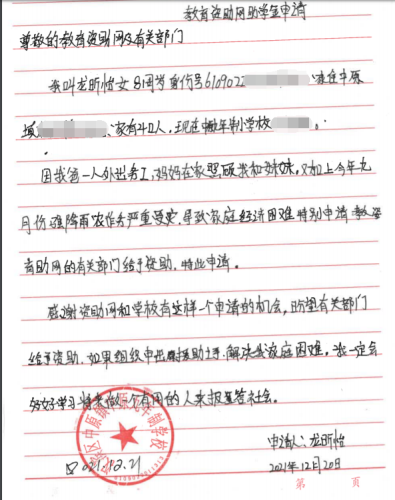 教育资助网助学金申请
尊敬的教育资助网及有关部门
我叫龙昕怡女8周岁身份号619022 住在中原
镇 家有四人,现在 九年制学校 。
因我爸一人外出务工,妈妈在家照顾我和妹妹。又加上今年九
月份强降雨农作物严重受灾,导致家庭经济困难特别申请教
育助网的有关部门给予资助,特此申请。
感谢资助网和学校有这样一个申请的机会,盼望有关部门
给予资助,如果组织申出援助士手,解决我家庭困难,我一定会
好好学习将来做个有用的人来报答社会。
申请人:龙昕怡
2021.12.21
2021年12月20日
第 页